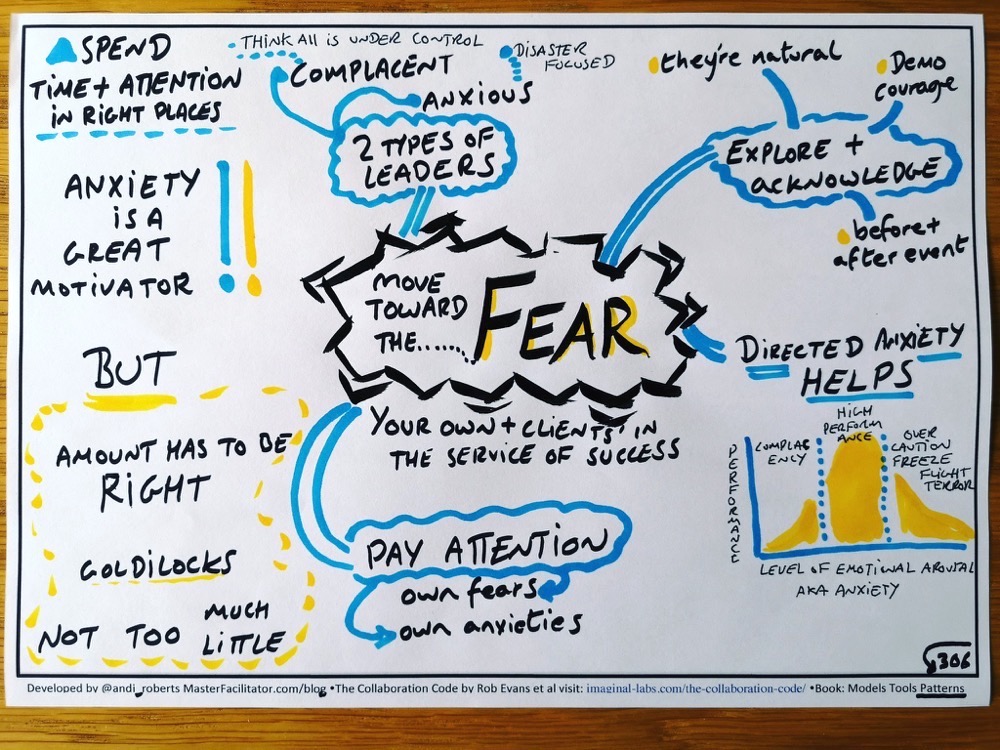 SPEND
TIME + ATTENTION
IN RIGHT PLACES
ANXIETY
IS A
GREAT
MOTIVATOR
BUT
AMOUNT HAS TO BE
RIGHT
GOLDILOCKS
MUCH
NOT TOO LITTLE
• THINK ALL IS UNDER CONTROL
COMPLACENT
• DISASTER
FOCUSED
ANXIOUS
2 TYPES OF
LEADERS
they're natural
DEMO
courage
EXPLORE +
ACKNOWLEDGE
before +
after event
MOVE
TOWARD
THE........
FEAR
YOUR OWN + CLIENTS' IN
THE SERVICE OF SUCCESS
PAY ATTENTION
own fears
own anxieties
DIRECTED ANXIETY
HELPS
HIGH
PERFORM
ANCE
COMPLAC
ENCY
OVER
CAUTION
FREEZE
FLIGHT
TERROR
PERFORMANCE
LEVEL OF EMOTIONAL AROUSAL
AKA ANXIETY
306
Developed by @andi_roberts MasterFacilitator.com/blog •The Collaboration Code by Rob Evans et al visit: imaginal-labs.com/the-collaboration-code/ •Book: Models Tools Patterns